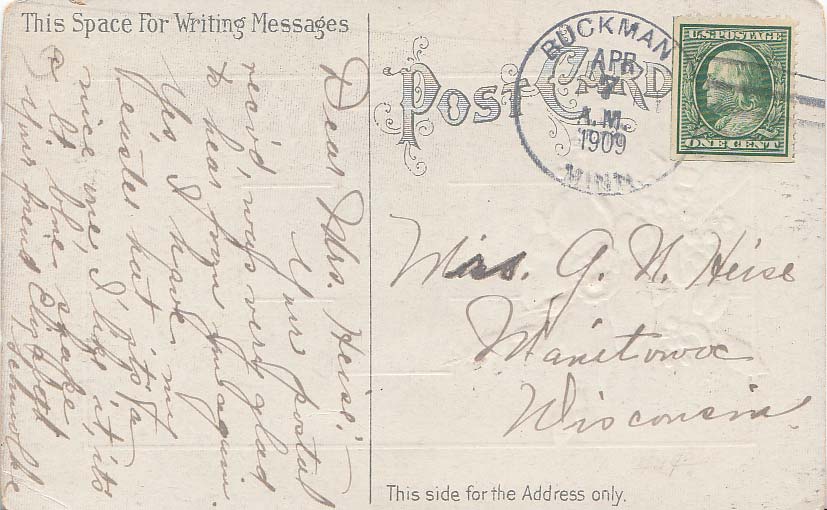 This Space For Writing Messages
Dear Mrs. Heise:—
Your postal
rec'd, was very glad
to hear from you again.
Yes, I have my
easter hat, it's a
nice one, I like it, its
a lt blue shape
Your friend
POST CARD
BUCKMAN
APR
7
A.M.
1909
MINN.
U.S. POSTAGE
ONE CENT
Mrs. G. N. Heise
Manitowoc
Wisconsin
This side for the Address only.